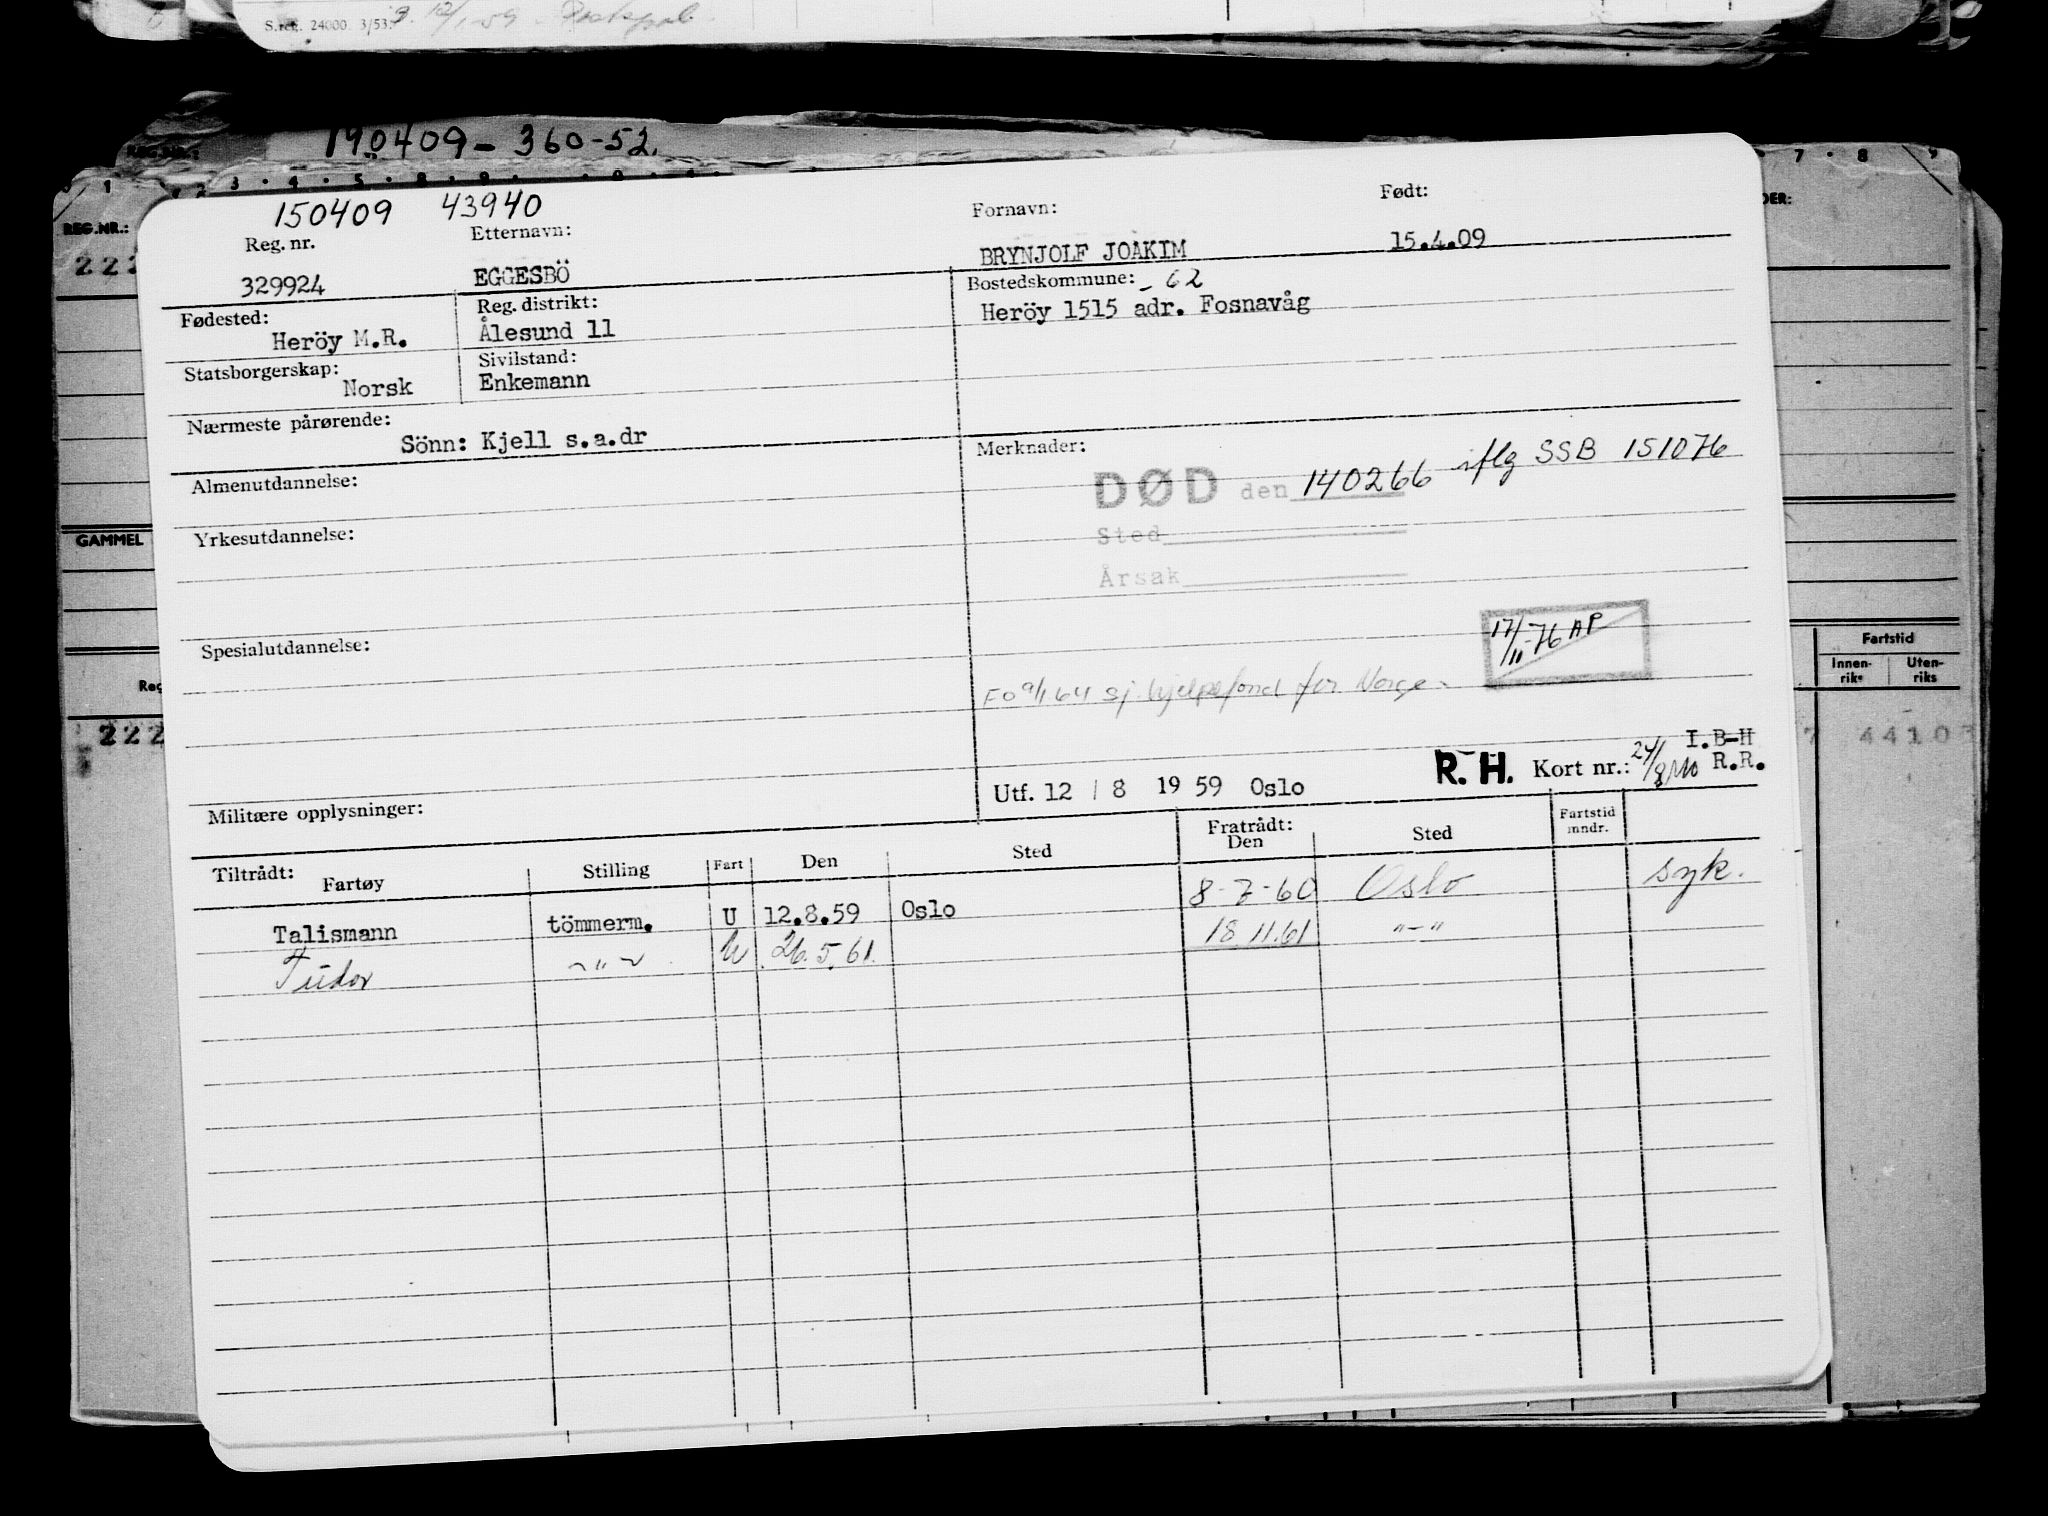 S.reg. 24000 3/53.
190409-360-52.
REG.NR.:
150409 43940
Reg. nr. Etternavn: Fornavn: Født:
329924 EGGESBÖ BRYNJOLF JOAKIM 15.4.09
Fødested: Reg. distrikt: Bostedskommune: -62
Heröy M.R. Ålesund 11 Heröy 1515 adr. Fosnavåg
Statsborgerskap: Sivilstand:
Norsk Enkemann
Nærmeste pårørende:
Sönn: Kjell s.a.dr
Merknader:
DØD den 140266 iflg SSB 151076
Sted
Årsak
Almenutdannelse:
Yrkesutdannelse:
Spesialutdannelse:
17/11-76 AP
FO 9/1 64 sj. hjelpefond for Norge.
I.B-H
R.H. Kort nr.: 24/8 R.R.
Utf. 12 / 8 19 59 Oslo
Militære opplysninger:
Tiltrådt: Fartøy Stilling Fart Den Sted Fratrådt: Den Sted Fartstid mndr.
Talismann tömmerm. U 12.8.59 Oslo 8-7-60 Oslo syk.
Tudor -"- U 26.5.61. 18.11.61 "-"
REG.NR.:
222
GAMMEL
Reg
222
DER:
Fartstid
Innen-riks Uten-riks
7 4410